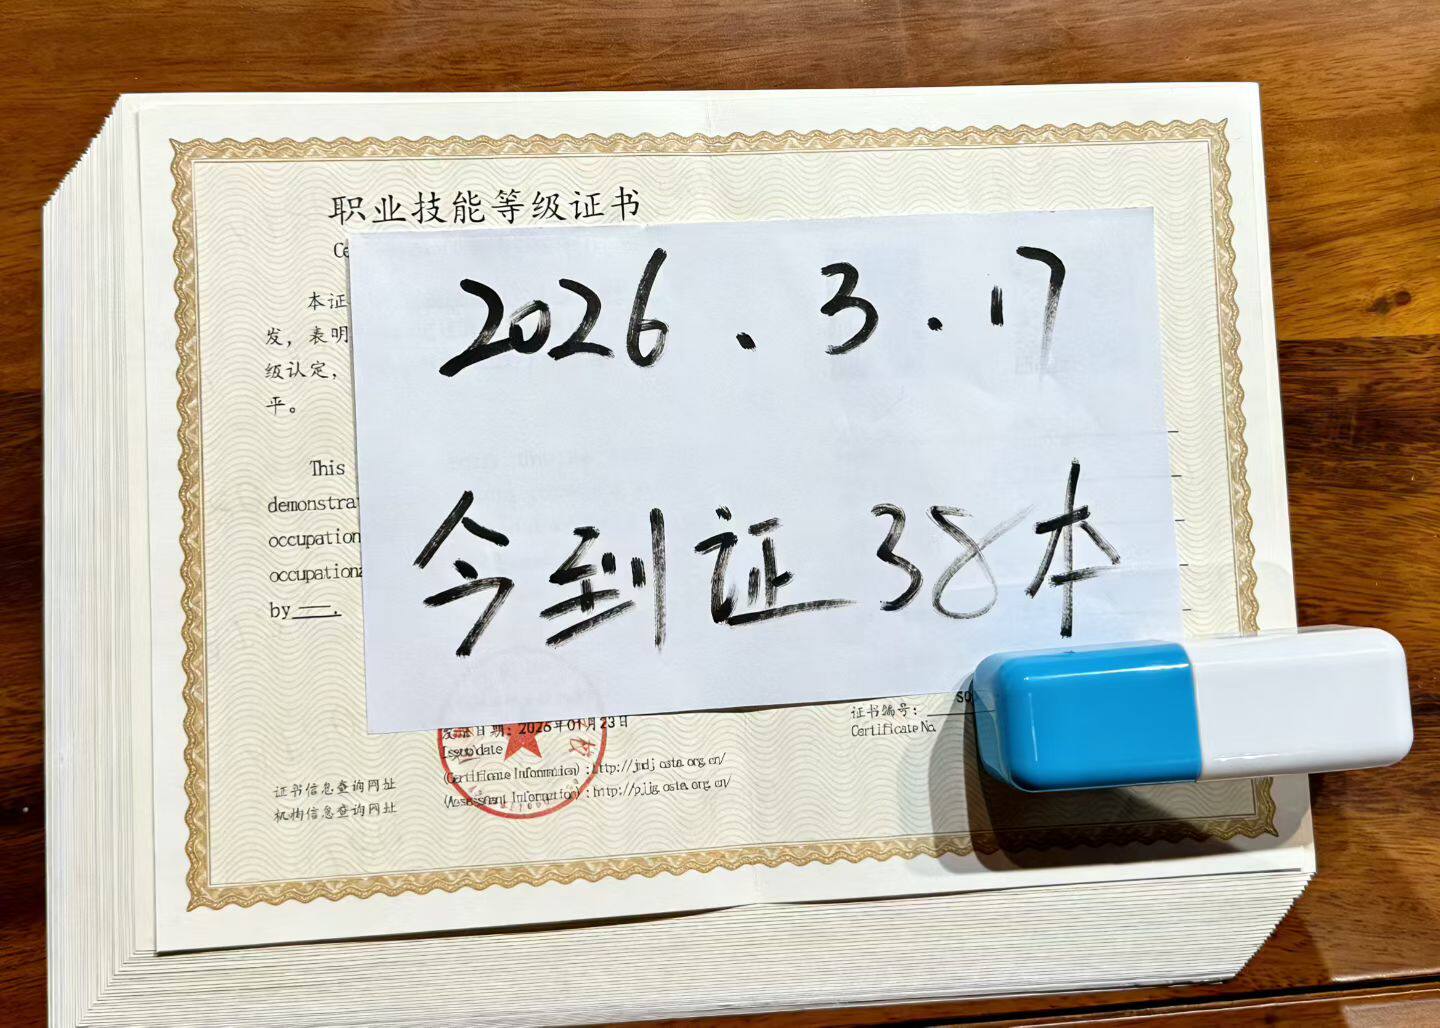 职业技能等级证书
Ce
2026.3.17
本证
发，表明
级认定，
平。
This
demonstra
occupation
occupationa
by
今到证38本
发证日期：2026年01月23日
Issue date
证书编号：
Certificate No.
证书信息查询网址
(Certificate Information) : http://jndj.osta.org.cn/
机构信息查询网址
(Assessment Information) : http://pjjg.osta.org.cn/